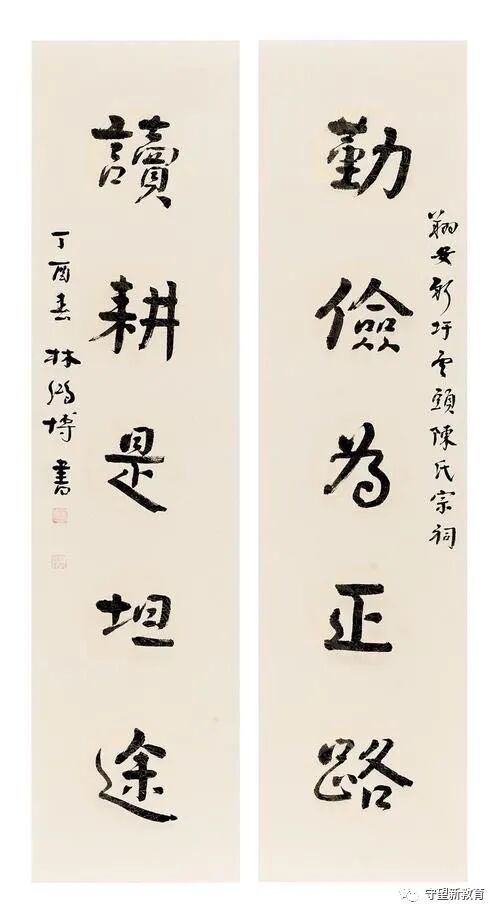 勤儉為正路
翔安新圩雲頭陳氏宗祠
讀耕是坦途
丁酉春 林鴻博書
守望新教育